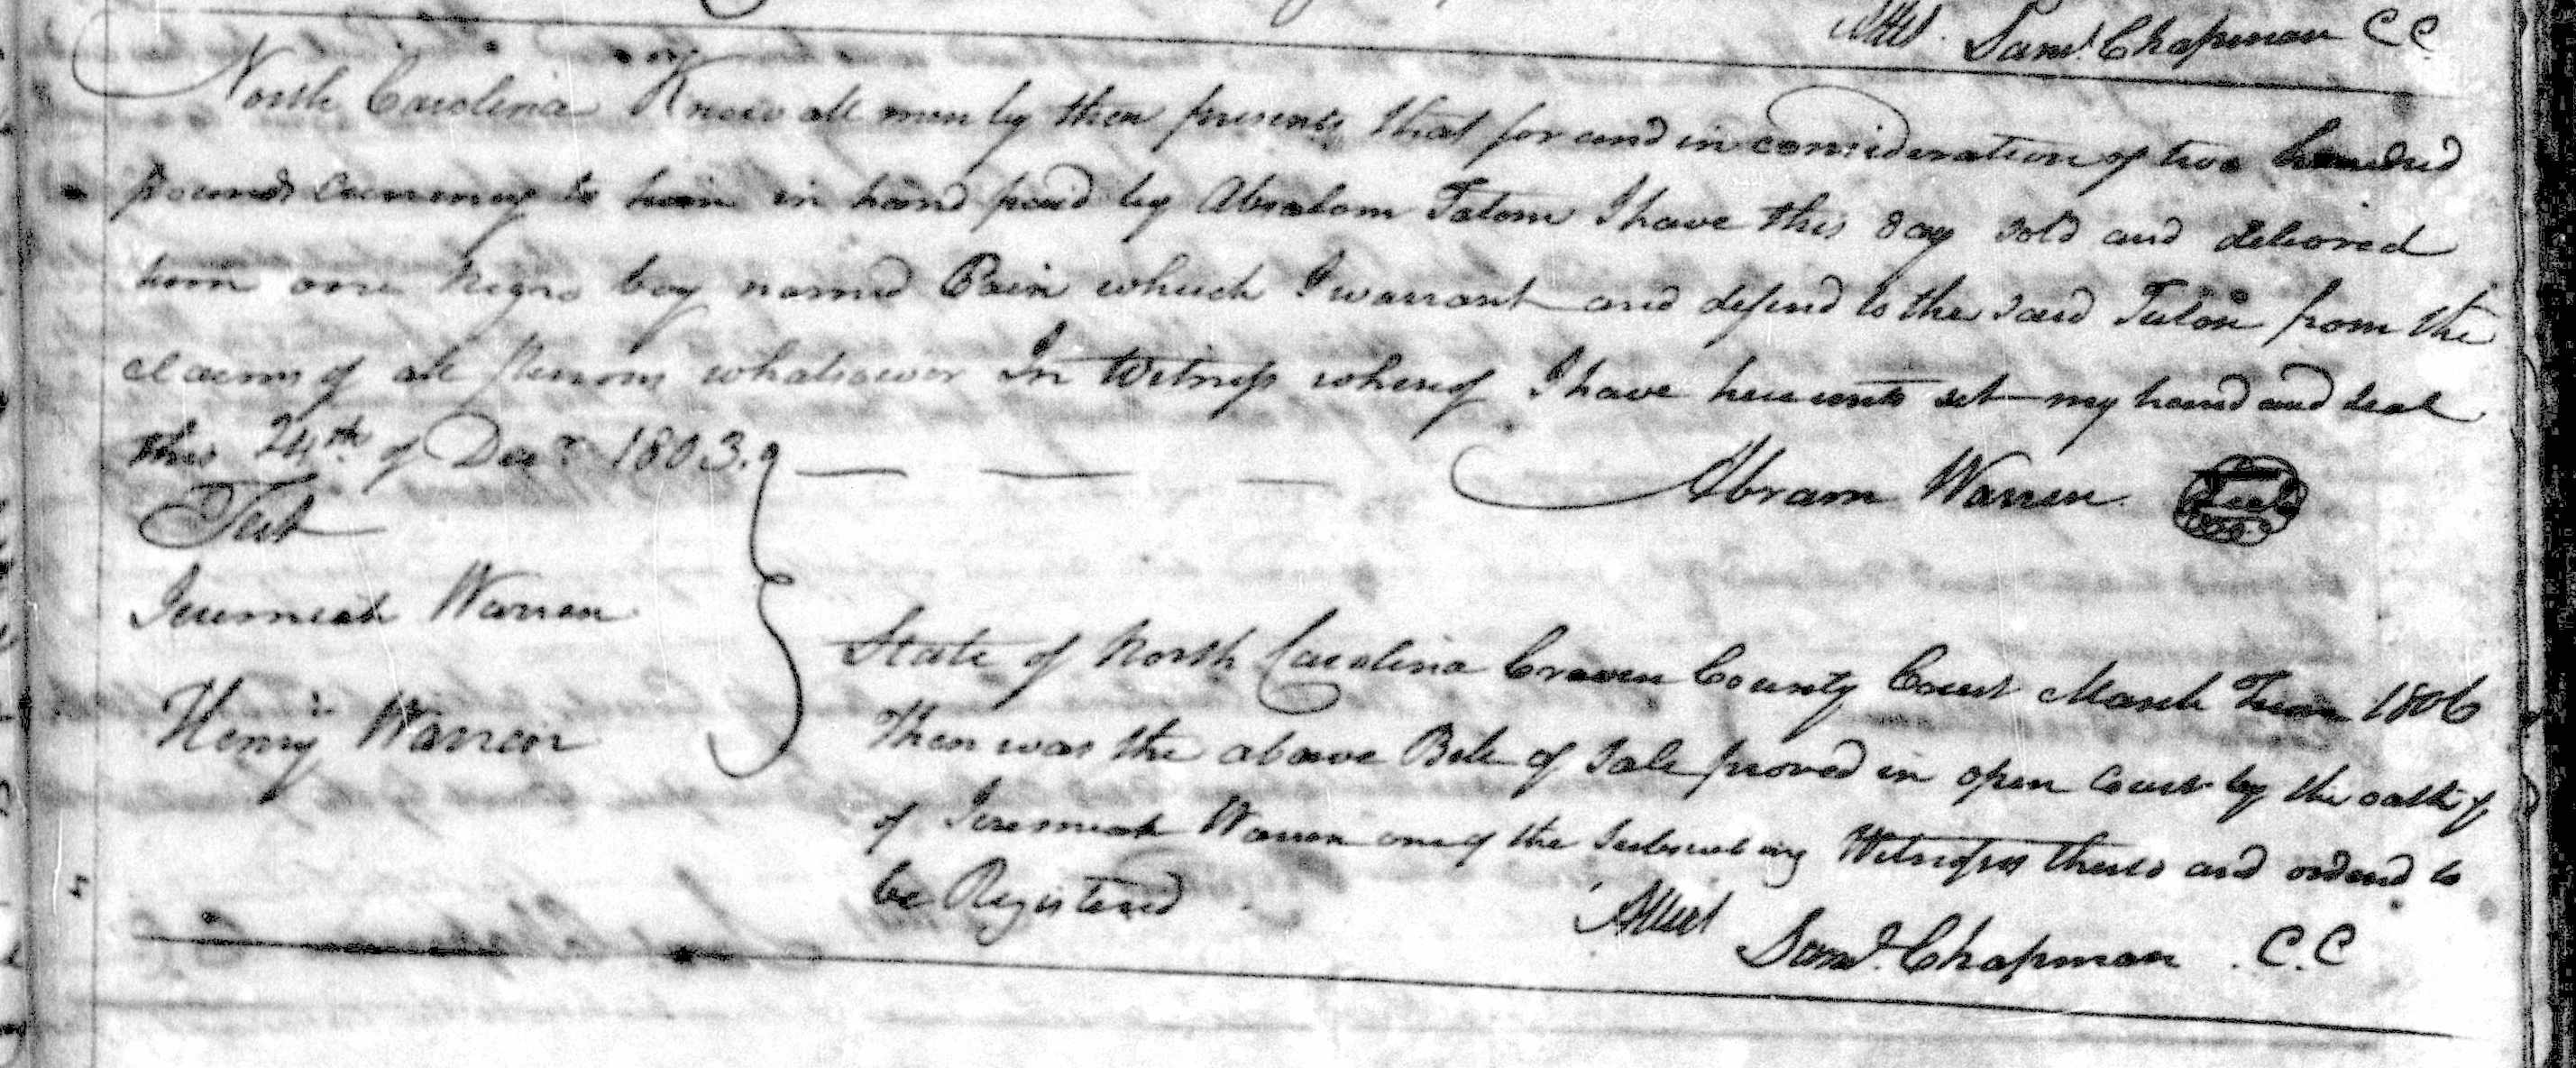 Attest. Saml. Chapman CC
North Carolina Know all men by these presents that for and in consideration of two hundred
pounds currency to him in hand paid by Absalom Tatom I have this day sold and delivered
him one negro boy named which I warrant and defend to the said Tatom from the
claims of all persons whatsoever In Witness whereof I have hereunto set my hand and seal
this 24th of Decr 1803.
Abram Warren Seal
Test
Jeremiah Warren
Henry Warren
State of North Carolina Craven County Court March Term 1806
Then was the above Bill of Sale proved in open Court by the oath of
of Jeremiah Warren one of the Subscribing Witnesses thereto and ordered to
be Registered
Attest
Saml. Chapman . C.C